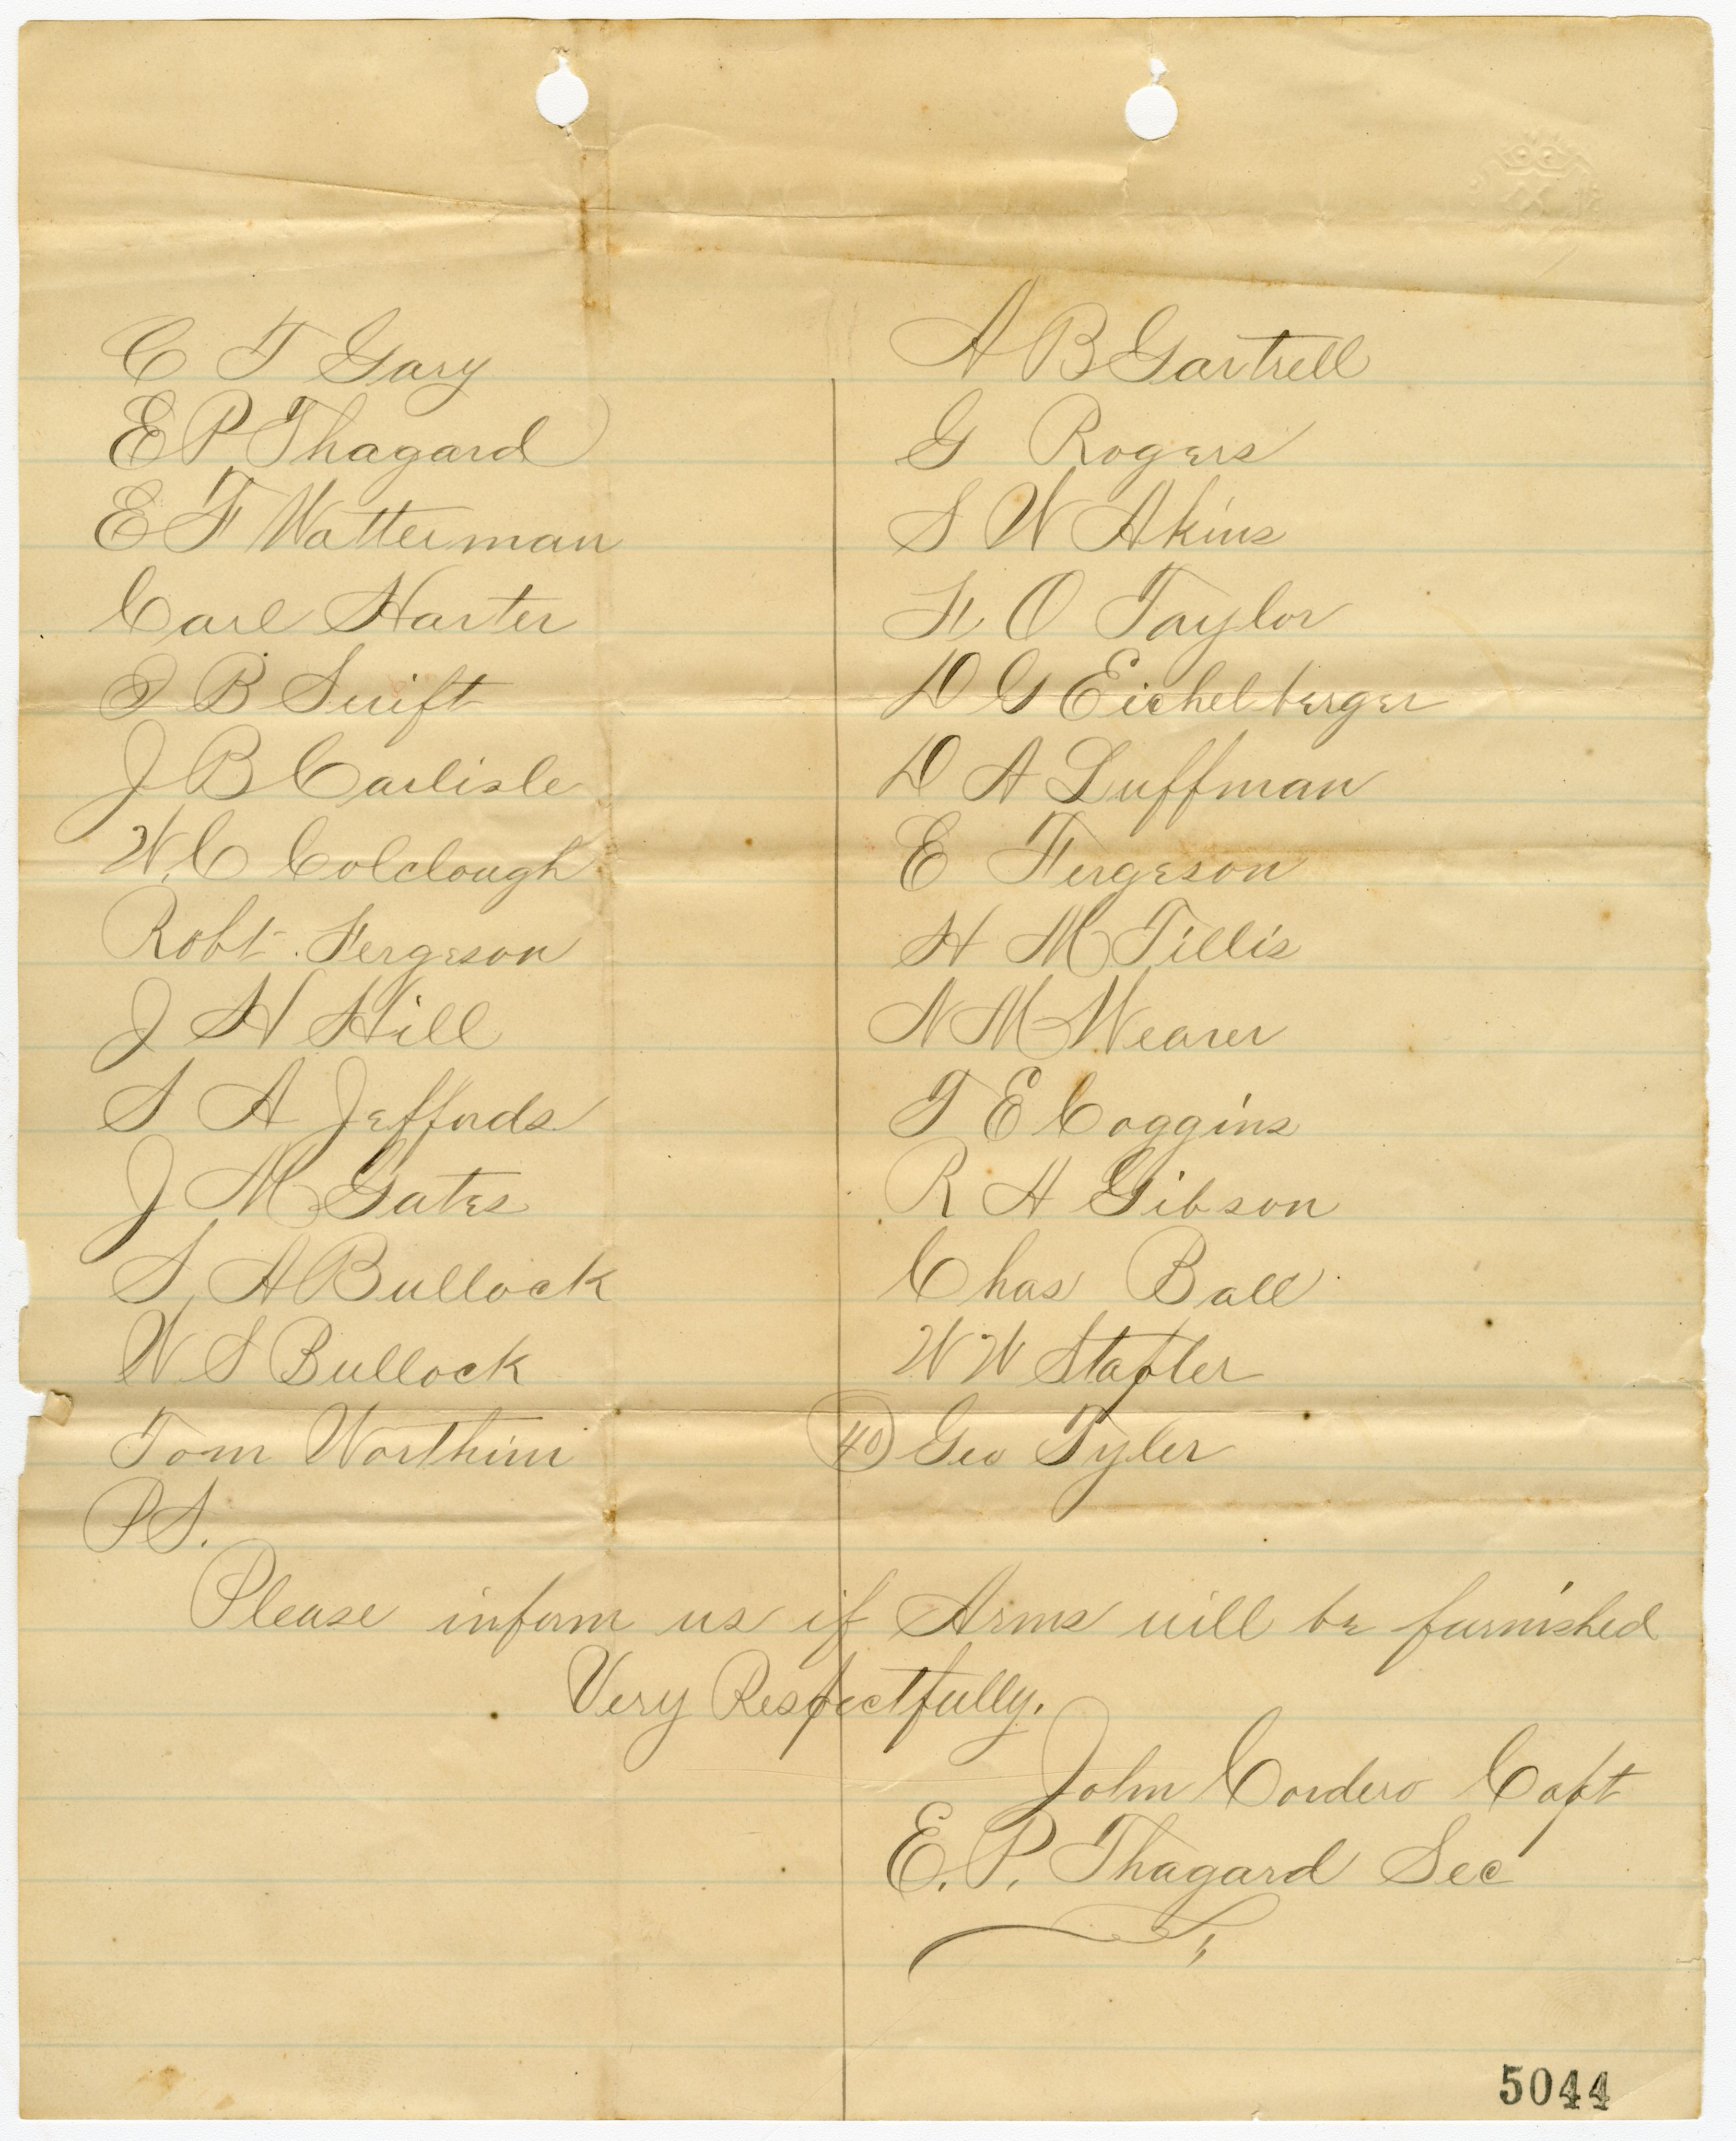 C T Gary
E P Thagard
E F Watterman
Carl Harter
I B Swift
J B Carlisle
W. C Colclough
Robt. Fergeson
J H Hill
S A Jeffords
J M Gates
S A Bullock
W S Bullock
Tom Worthim
A B Gartrell
G Rogers
S W Akins
F. O Taylor
D G Eichelberger
D A Luffman
E Fergeson
H M Tillis
N M Wearer
T E Coggins
R H Gibson
Chas Ball
W W Stapler
40 Geo Tyler
PS.
Please inform us if Arms will be furnished
Very Respectfully.
John Cordero Capt
E. P. Thagard Sec
5044